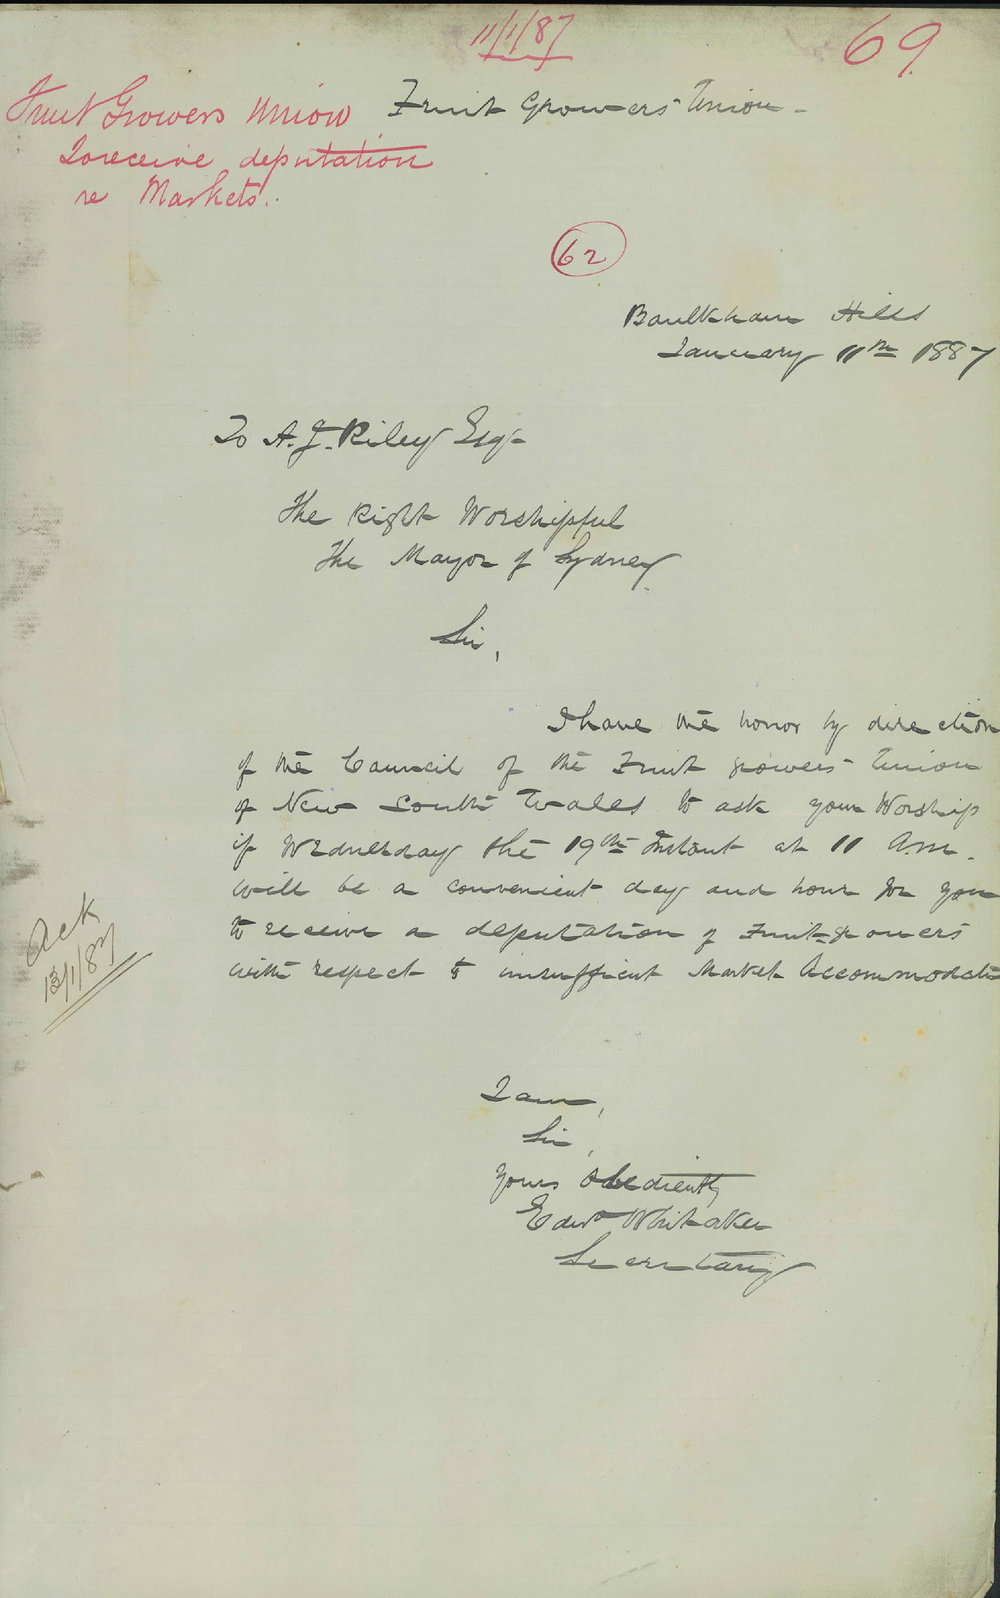 11/1/87
69.
Fruit Growers Union
To receive deputation
re Markets.
Fruit Growers' Union -
62
Baulkham Hills
January 11th 1887
To A. J. Riley Esq-
The Right Worshipful
The Mayor of Sydney.
Sir,
I have the honor by direction
of the Council of the Fruit growers' Union
of New South Wales to ask your Worship
if Wednesday the 19th Instant at 11 A.m.
will be a convenient day and hour for you
to receive a deputation of Fruit-growers
with respect to insufficient Market Accommodati
Ack
13/1/87
I am,
Sir,
Yours Obediently
Edwd Whitaker
Secretary